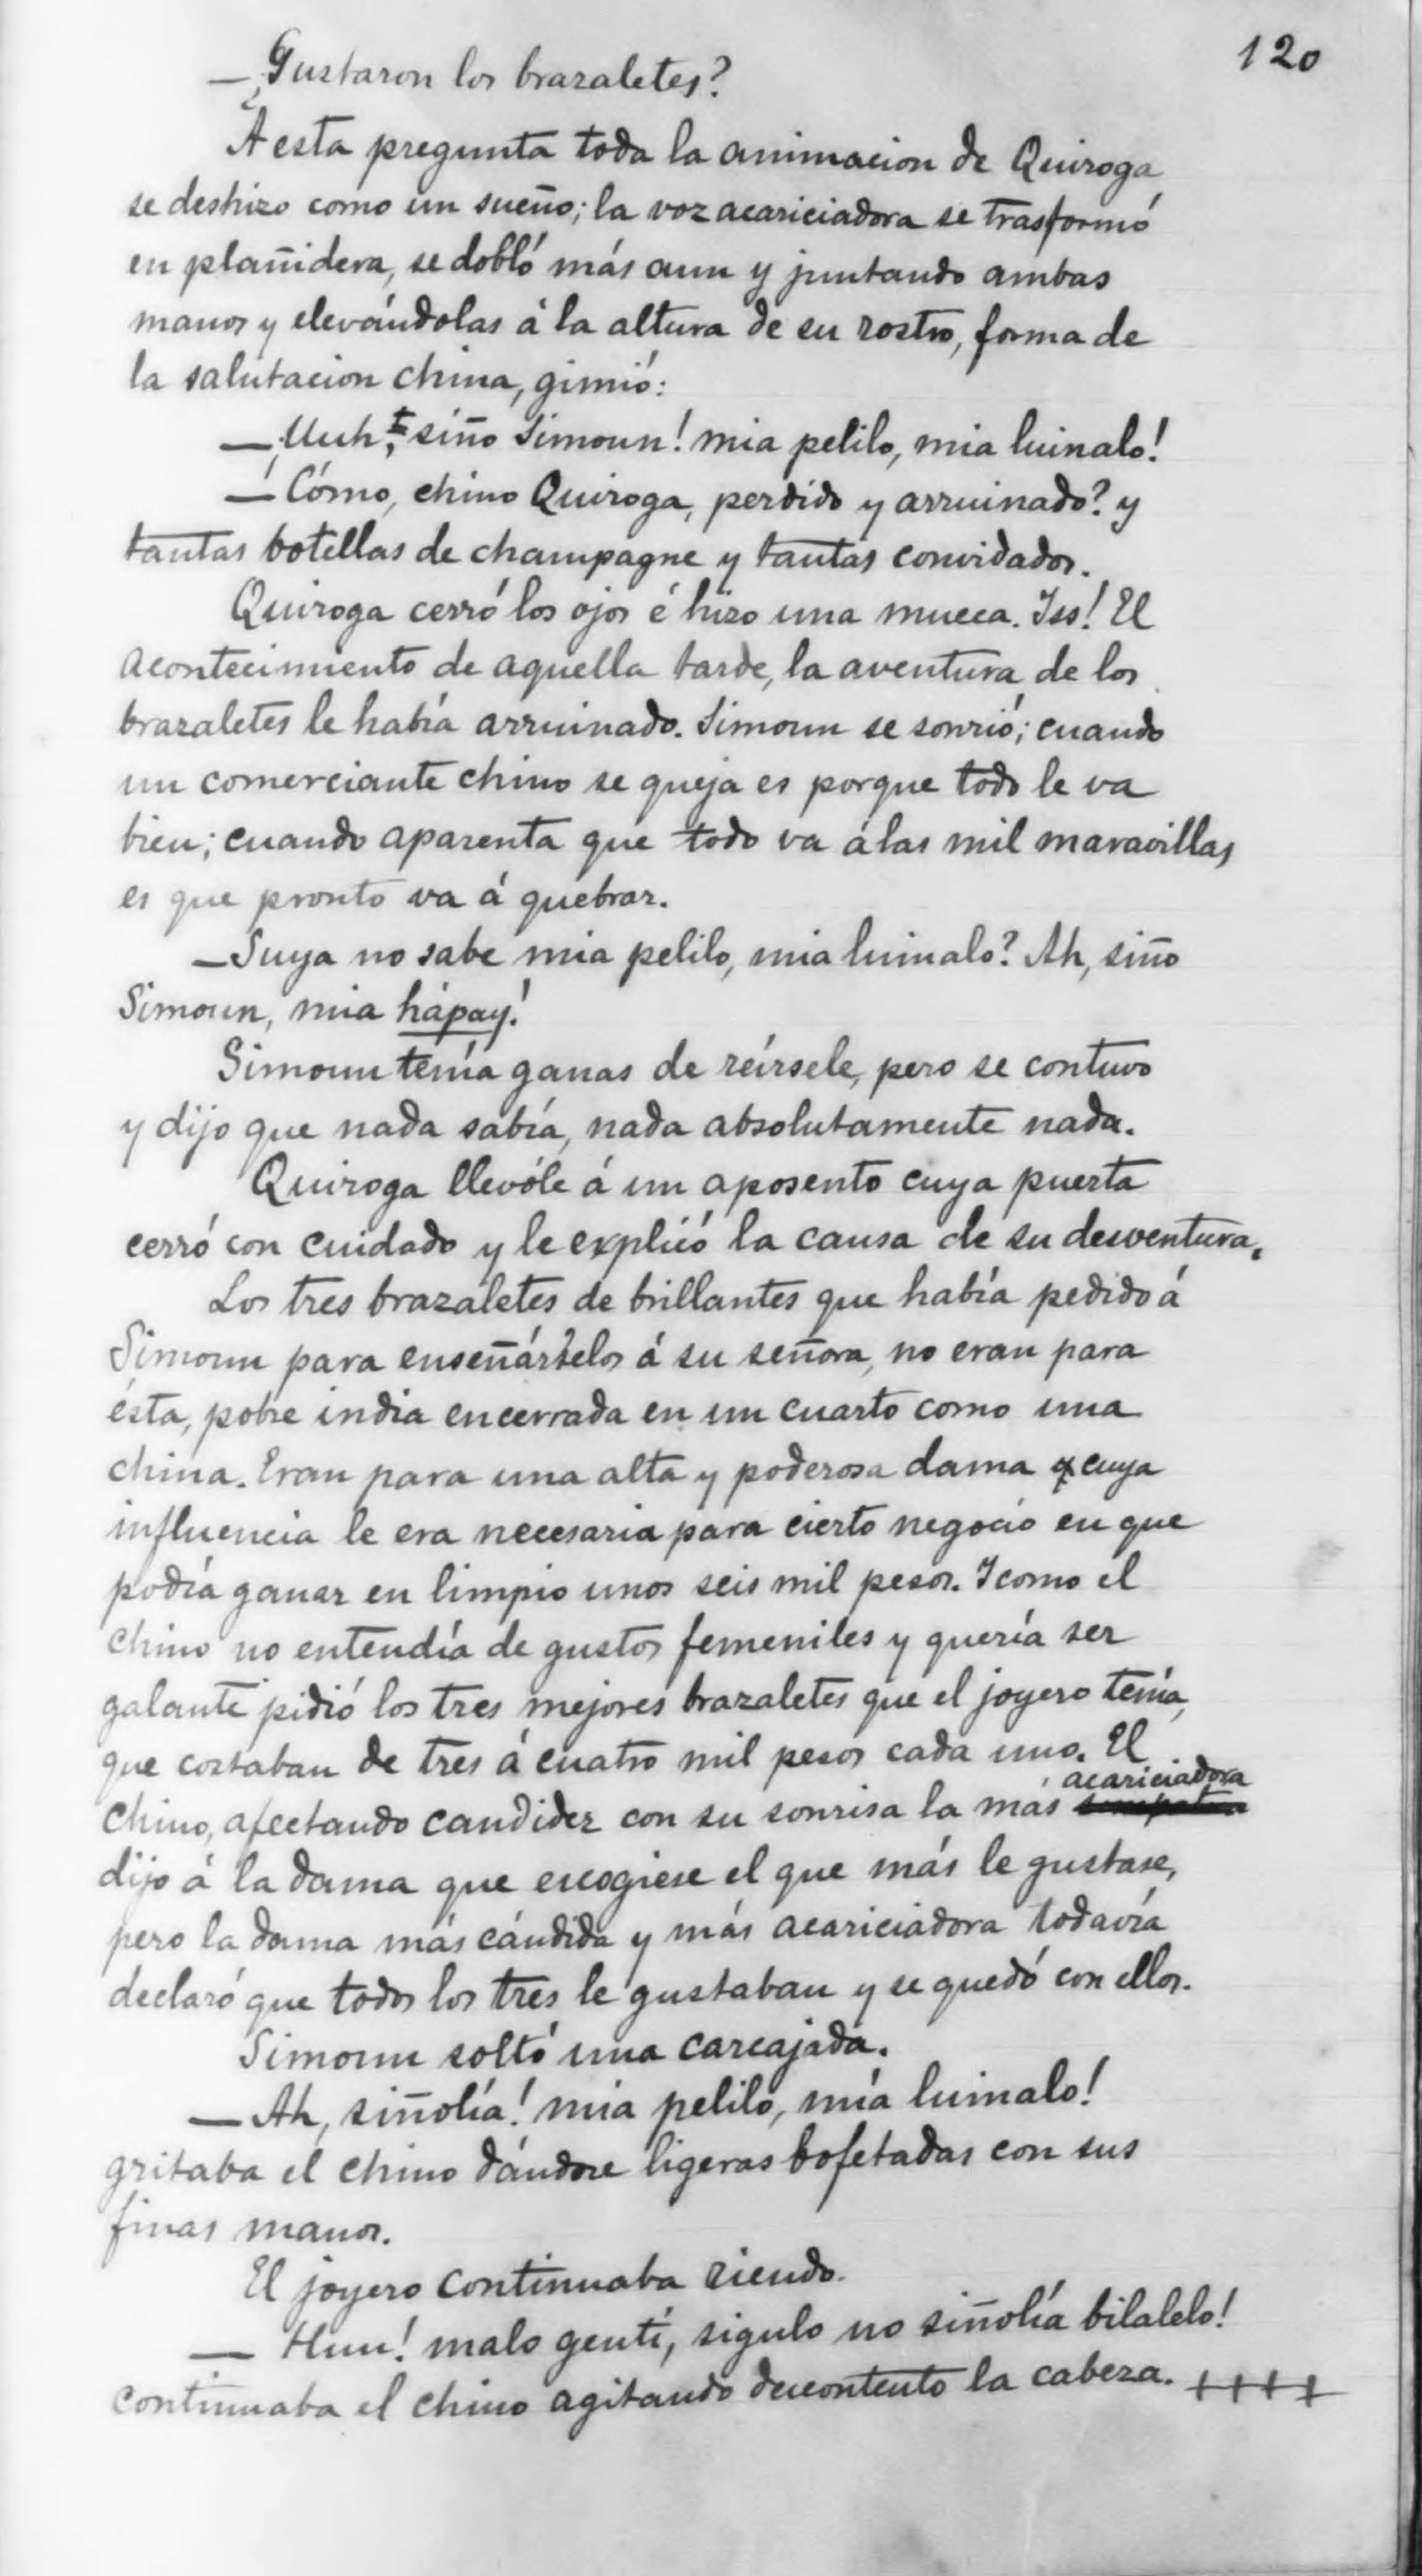 120
—¿Gustaron los brazaletes?
A esta pregunta toda la animacion de Quiroga
se deshizo como un sueño; la voz acariciadora se trasformó
en plañidera, se dobló más aun y juntando ambas
manos y elevándolas á la altura de su rostro, forma de
la salutacion china, gimió:
—¡Uuh, siño Simoun! mia pelilo, mia luinalo!
—Cómo, chino Quiroga, perdido y arruinado? y
tantas botellas de champagne y tantas convidados.
Quiroga cerró los ojos é hizo una mueca. Jss! El
acontecimiento de aquella tarde, la aventura de los
brazaletes le había arruinado. Simoun se sonrió; cuando
un comerciante chino se queja es porque todo le va
bien; cuando aparenta que todo va á las mil maravillas
es que pronto va á quebrar.
—Suya no sabe mia pelilo, mia luinalo? Ah, siño
Simoun, mia hápay!
Simoun tenía ganas de reírsele, pero se contuvo
y dijo que nada sabía, nada absolutamente nada.
Quiroga llevóle á un aposento cuya puerta
cerró con cuidado y le explicó la causa de su desventura.
Los tres brazaletes de brillantes que había pedido á
Simoun para enseñárselos á su señora, no eran para
ésta, pobre india encerrada en un cuarto como una
china. Eran para una alta y poderosa dama cuya
influencia le era necesaria para cierto negocio en que
podía ganar en limpio unos seis mil pesos. Y como el
chino no entendía de gustos femeniles y quería ser
galante pidió los tres mejores brazaletes que el joyero tenía,
que costaban de tres á cuatro mil pesos cada uno. El
chino, afectando candidez con su sonrisa la más acariciadora
dijo á la dama que escogiese el que más le gustase,
pero la dama más cándida y más acariciadora todavía
declaró que todos los tres le gustaban y se quedó con ellos.
Simoun soltó una carcajada.
—Ah, siñolía! mia pelilo, mía luinalo!
gritaba el chino dándose ligeras bofetadas con sus
finas manos.
El joyero continuaba riendo.
—Huu! malo genti, sigulo no siñolía bilalelo!
continuaba el chino agitando descontento la cabeza. ++++